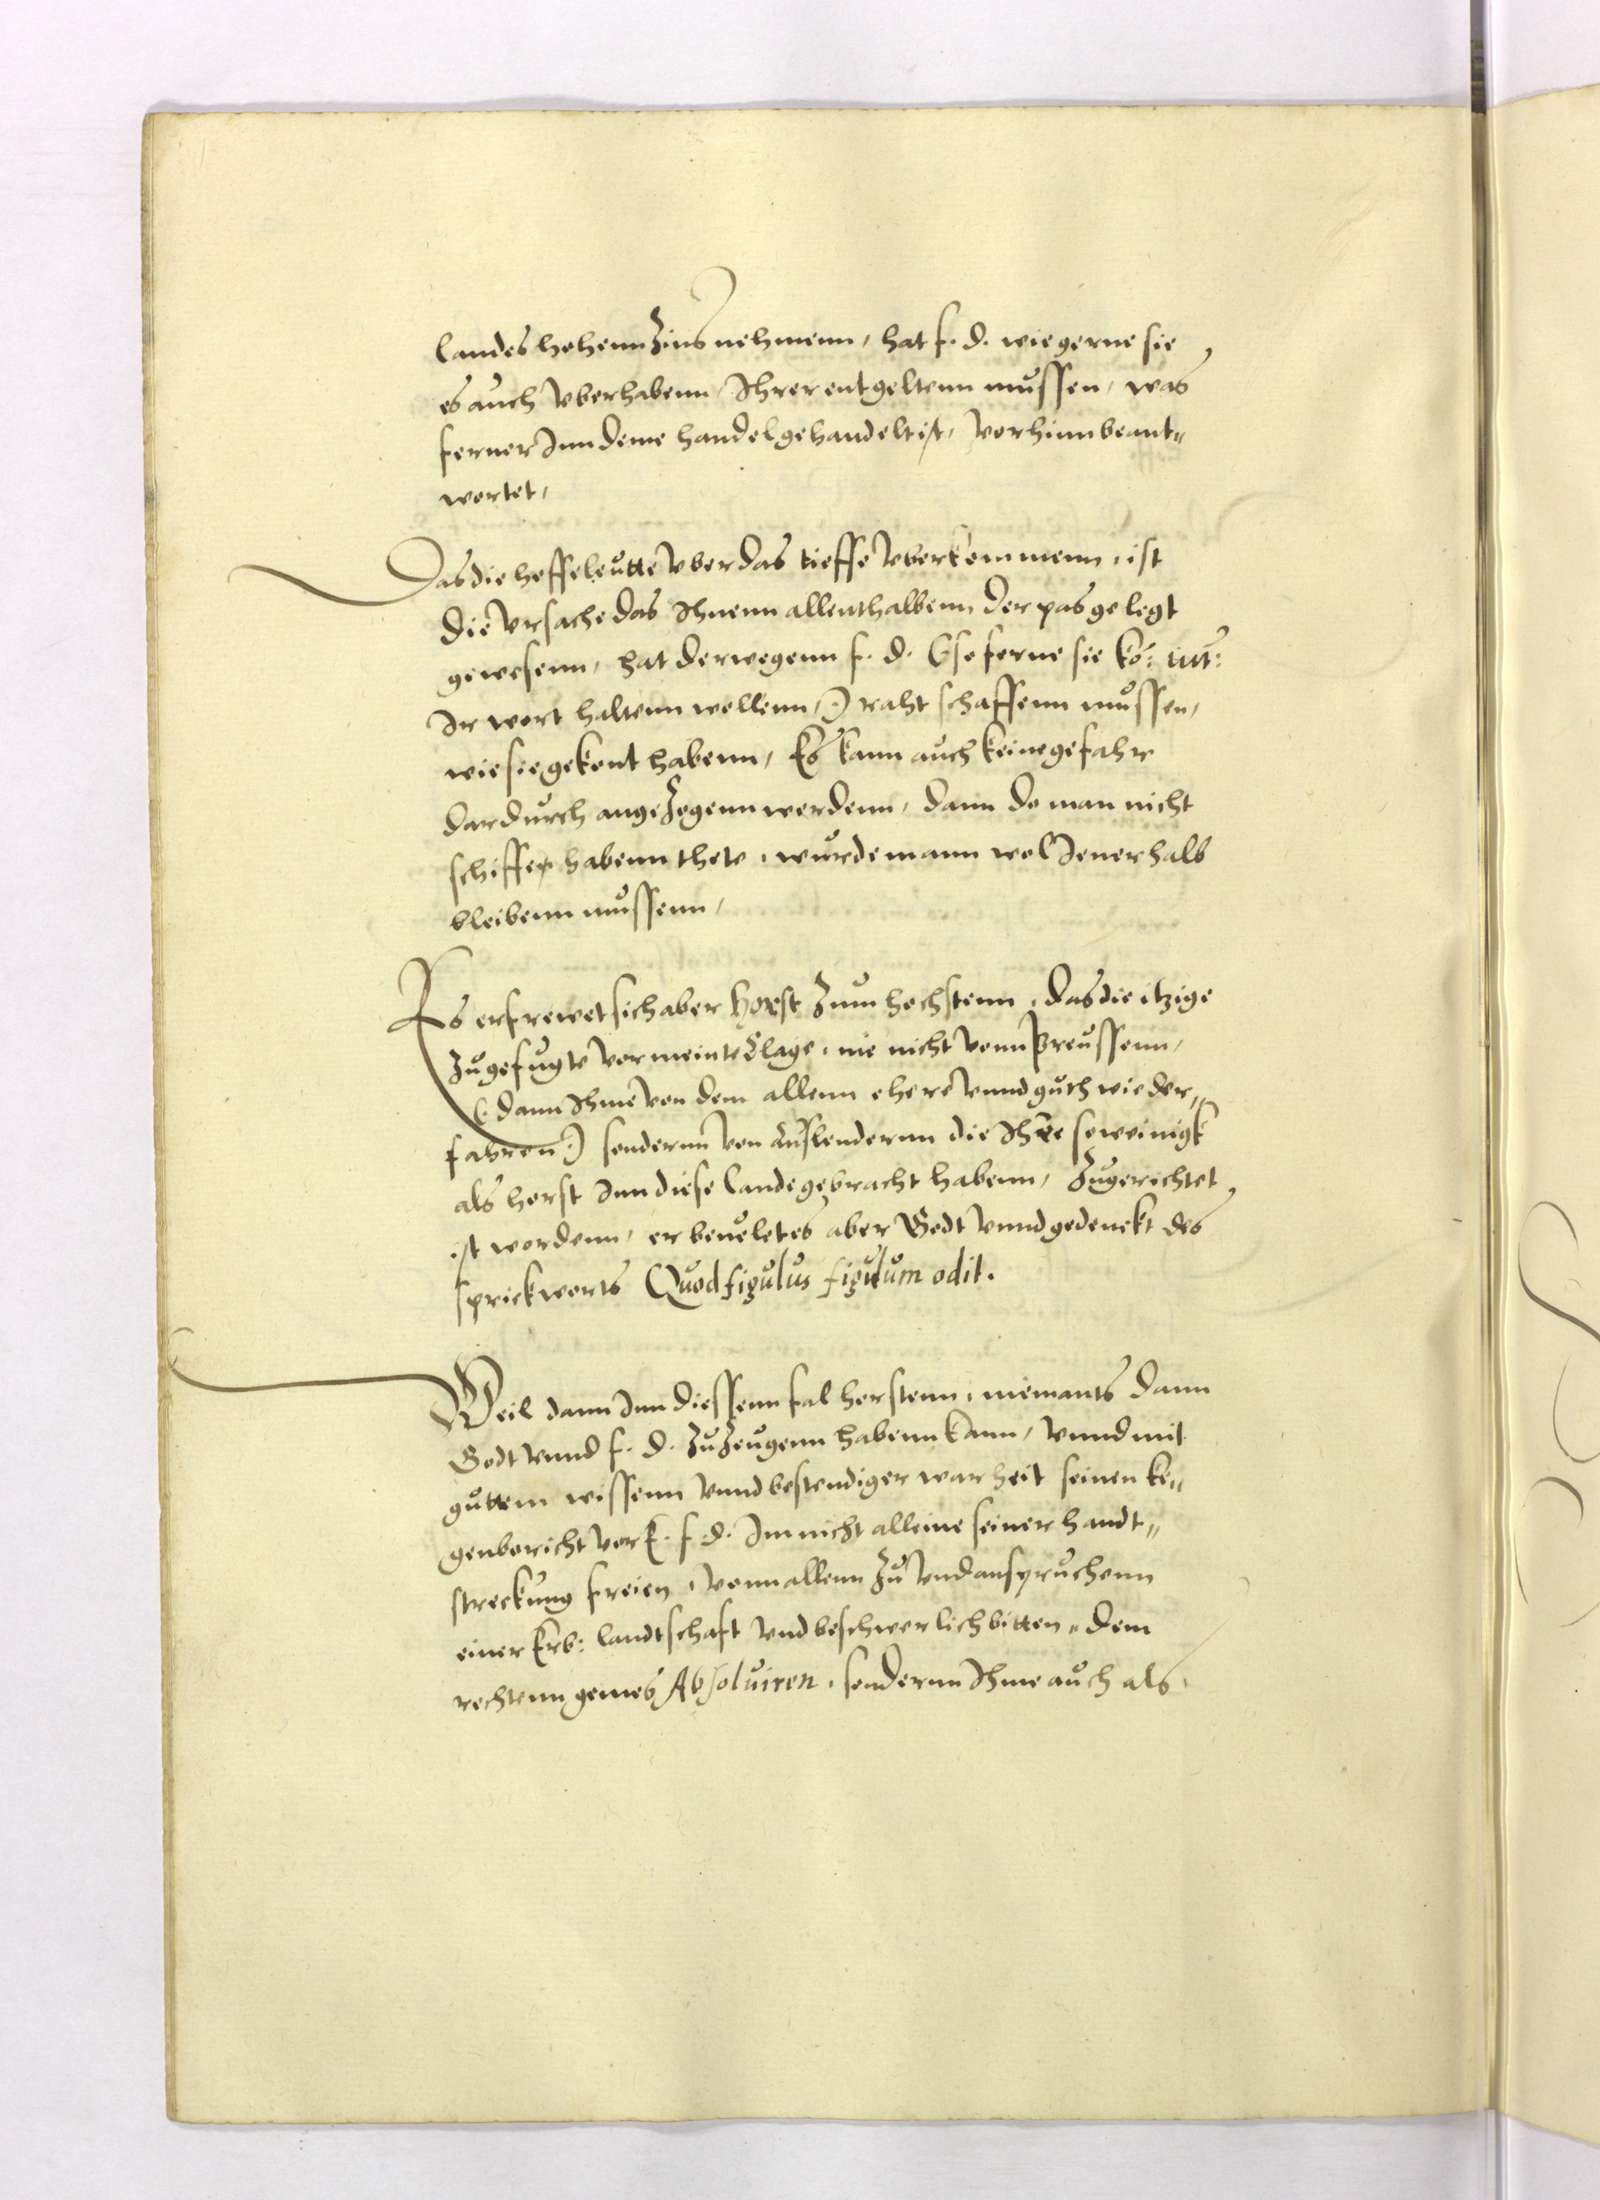 landes hohenn Zins nehmenn, hat f. d. wie gerne sie
es auch vberhabenn, Ihrer entgeltenn mussen, was
ferner Inn deme handel gehandelt ist, vorhinn beant„
wortet,
Das die hoffeleutte vber das tieffe vberkommenn, ist
die vrsache das Ihnenn allenthalbenn der pas gelegt
gewesenn, hat derwegenn f. d. (: so ferne sie ko: Mt:
Ir wort haltenn wollenn, :) raht schaffenn mussen,
wie sie gekont habenn, Es kann auch keine gefahr
dardurch angezogenn werdenn, dann do man nicht
schiffe habenn thete, wurde mann wol Jenerhalb
bleibenn mussenn,
Es erfrewet sich aber Horst zum hochstenn, das die itzige
zugefugte vormeinte klage, nie nicht vonn Preussenn,
(: dann Ihme von dem allenn ehere vnnd guth wieder„
fahren :) sonderrnn von Auslenderrnn die Ihre so weinigk
als horst Inn diese lande gebracht habenn, zugerichtet
ist wordenn, er beuelet es aber Godt vnnd gedenckt des
sprickworts Quod figulus figulum odit.
Weil dann Inn diessenn fal horstenn, niemants dann
Godt vnnd f. d. zu Zeugenn habenn kann, vnnd mit
guttem wissenn vnnd bestendiger warheit seinen ke„
genbericht vor E. f. d. Im nicht alleine seiner handt„
streckung freien, vonn allenn zu vnd anspruchenn
einer Erb: landtschaft vnd beschwerlich bitten, dem
rechtenn gemes Absoluiren, sondernn Ihme auch als